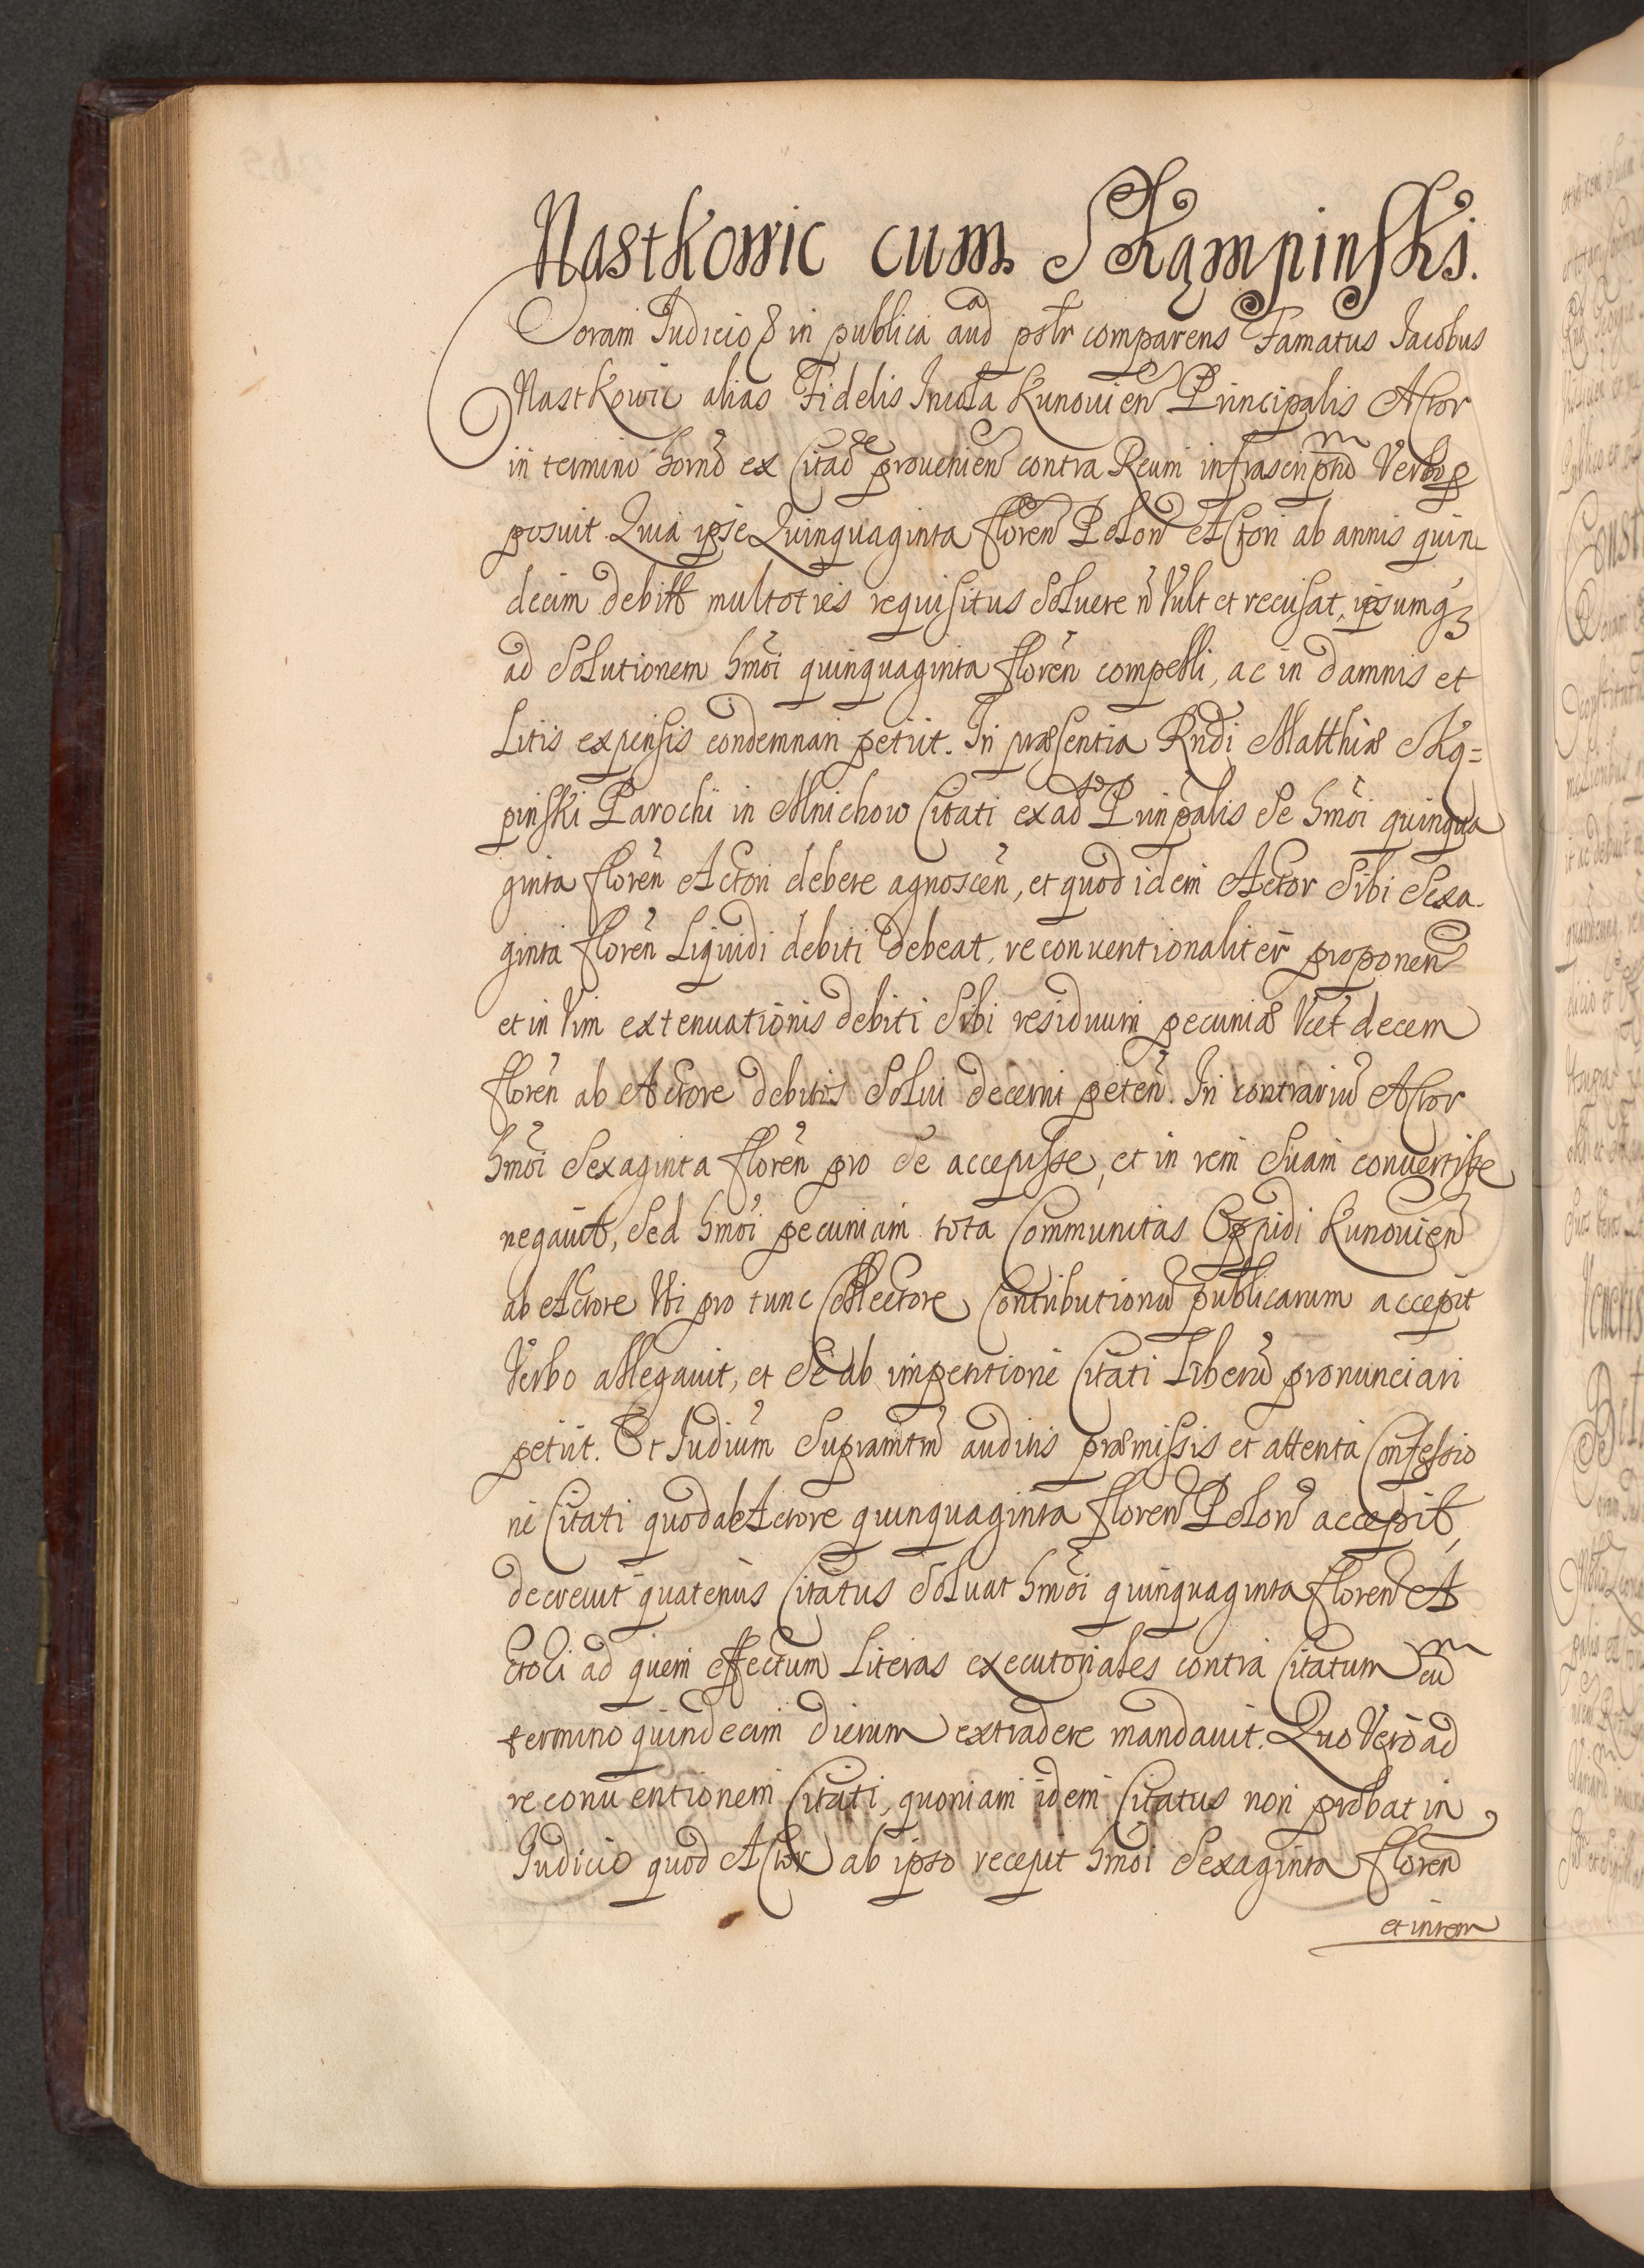 Nastkowic cum Skąmpinski.
Coram Iudicio & in publica aud^a pslr comparens Famatus Iacobus
Nastkowic alias Fidelis Incola Kunouień Principalis Actor
in termino horno ex Citaōe prouenień contra Reum infrascriptum Verbo p
posuit. Quia ipse Quinquaginta floreń Poloń Actori ab annis quin
decim debitt multoties requisitus Soluere ñ Vult et recusat, ipsumq₃
ad Solutionem hmōi quinquaginta floreń compelli, ac in damnis et
Litis expensis condemnari petiit. In præsentia Rndi Matthiæ Ską=
pinski Parochi in Mnichow Citati ex ad^o Prinpalis Se hmōi quinqua
ginta floreń Actori debere agnosceń, et quod idem Actor Sibi Sexa.
ginta floreń Liquidi debiti debeat, reconuentionaliter proponeń
et in Vim extenuationis debiti Sibi residuum pecuniæ Vcet decem
floreń ab Actore debitis Solui decerni peteń. In contrariū Actor
hmōi Sexaginta floreń pro Se accepisse, et in rem Suam conuertisse
negauit, Sed hmōi pecuniam tota Communitas Oppidi Kunouień
ab Actore Uti pro tunc Collectore Contributionū publicarum accepit
Verbo allegauit, et Se ab impentione Citati Liberū pronunciari
petiit. Et Iudium Supramtm auditis præmissis et attenta Confessio
ne Citati quod ab Actore quinquaginta floreń Poloń accepit,
decreuit quatenus Citatus Soluat hmōi quinquaginta floreń A
ctori ad quem effectum Literas executoriales contra Citatum cū
termino quindecim dierum extradere mandauit. Quo Vero ad
reconuentionem Citati, quoniam idem Citatus non probat in
Iudicio quod Actor ab ipso recepit hmōi Sexaginta floreń
et in rem